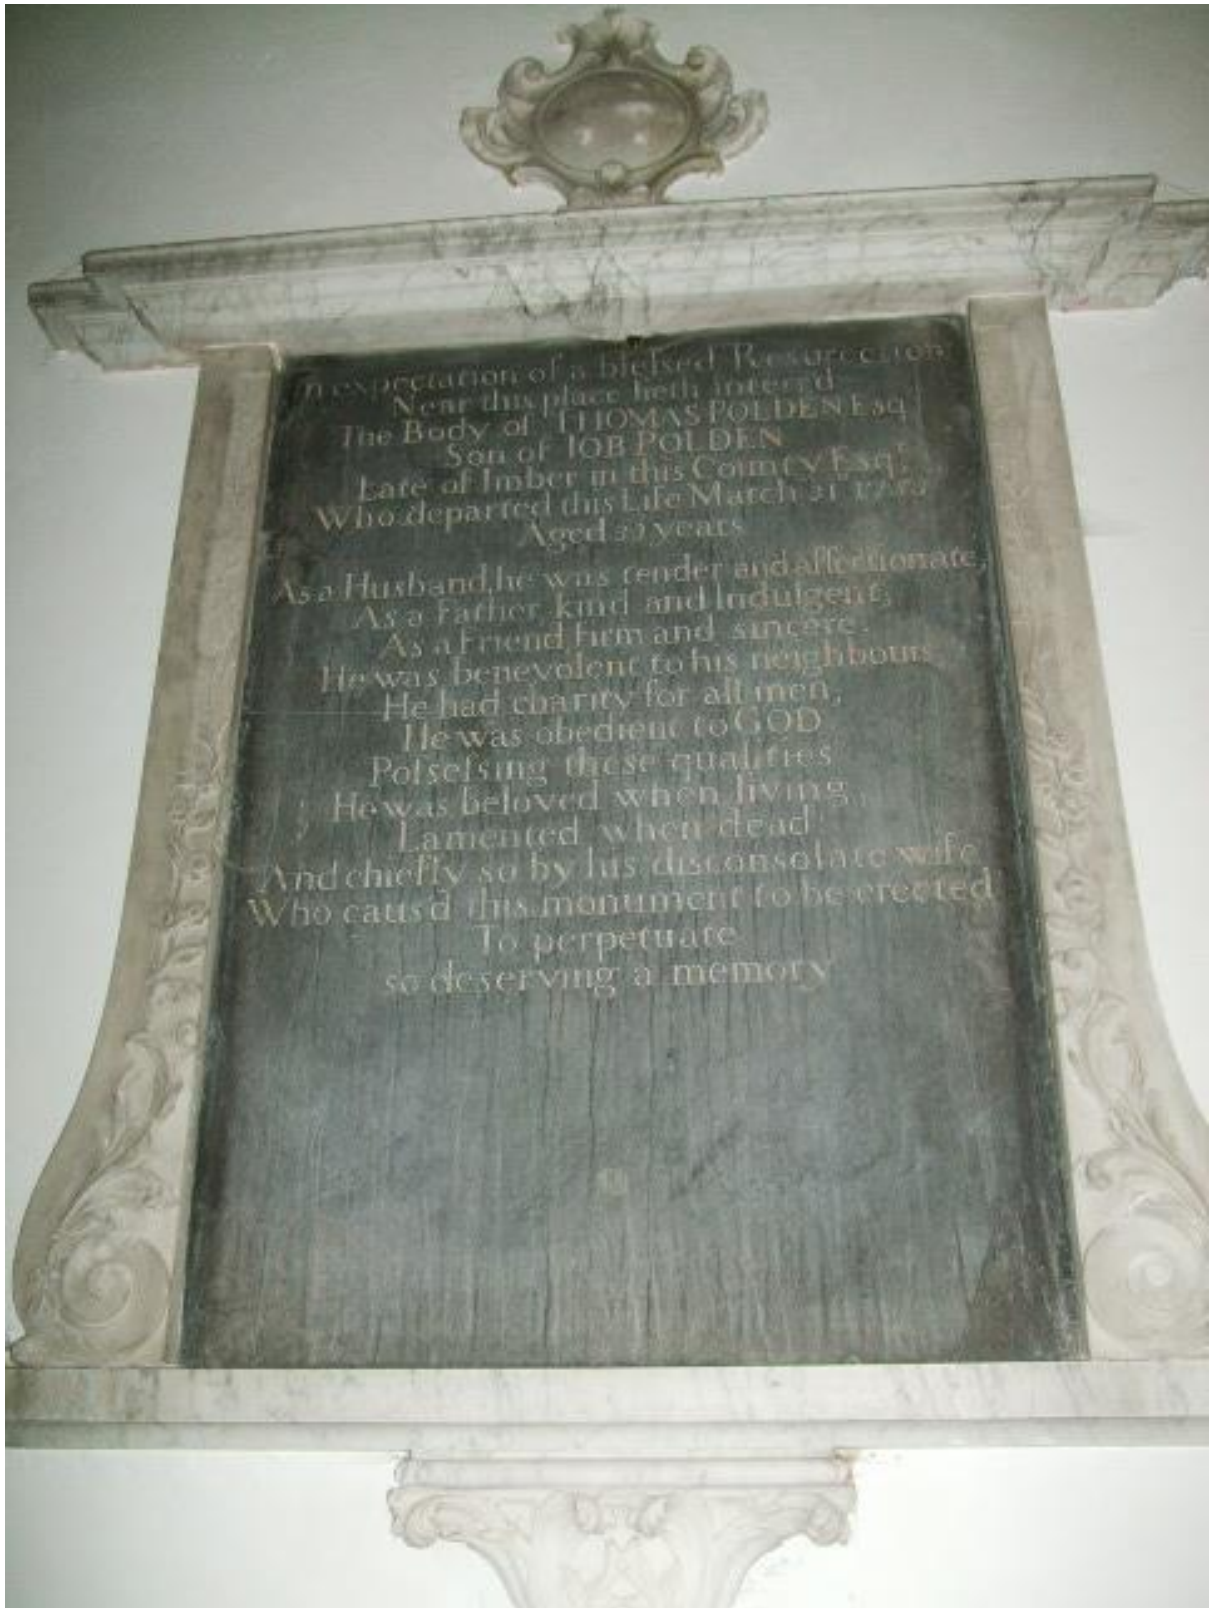 In expectation of a bleſsed Resurection
Near this place lieth interr'd
The Body of THOMAS POLDEN Esqr
Son of IOB POLDEN
Late of Imber in this County Esqr.
Who departed this Life March 21
Aged years
As a Husband, he was tender and affectionate,
As a Father kind and Indulgent,
As a Friend firm and sincere.
He was benevolent to his neighbours
He had charity for all men,
He was obedient to GOD
Poſseſsing these qualities
He was beloved when living
Lamented when dead
And chiefly so by his disconsolate wife
Who caus'd this monument to be erected
To perpetuate
so deserving a memory